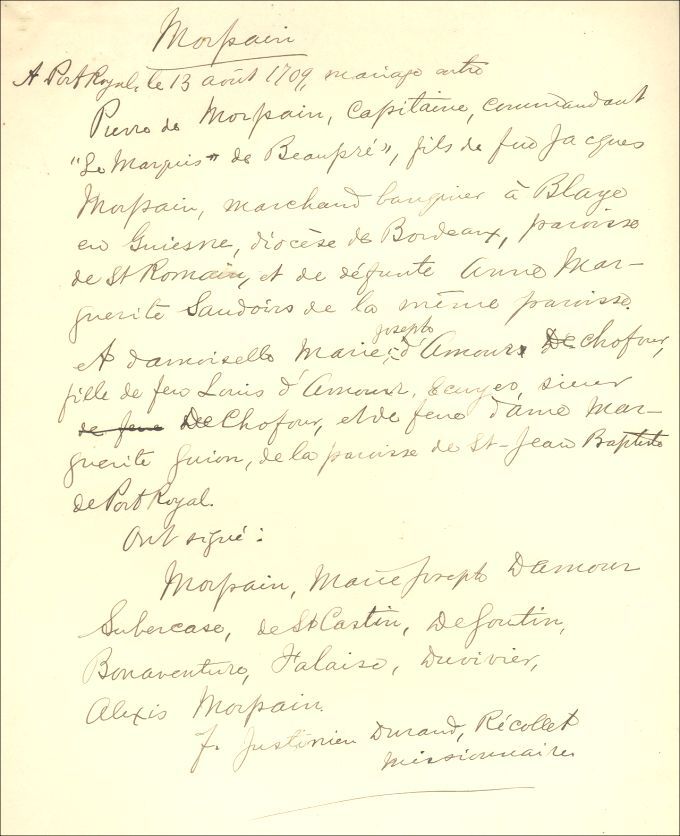 Morpain
A Port Royal, le 13 août 1709, mariage entre
Pierre de Morpain, Capitaine, commandant
"Le Marquis" de Beaupré", fils de feu Jacques
Morpain, marchand banquier à Blaye
en Guienne, diocèse de Bordeaux, paroisse
de St Romain, et de défunte Anne Mar-
guerite Saudoirs de la même paroisse.
Et damoiselle Marie joseph d'Amours De chofour,
fille de feu Louis d'Amour, Ecuyer, sieur
de feue De Chofour, et de feue dame Mar-
guerite Guion, de la paroisse de St-Jean Baptiste
de Port Royal.
Ont signé :
Morpain, Marie Joseph Damour
Subercase, de St Castin, De Goutin,
Bonaventure, Falaise, Duvivier,
Alexis Morpain.
f. Justinien Durand, Récollet
missionnaire